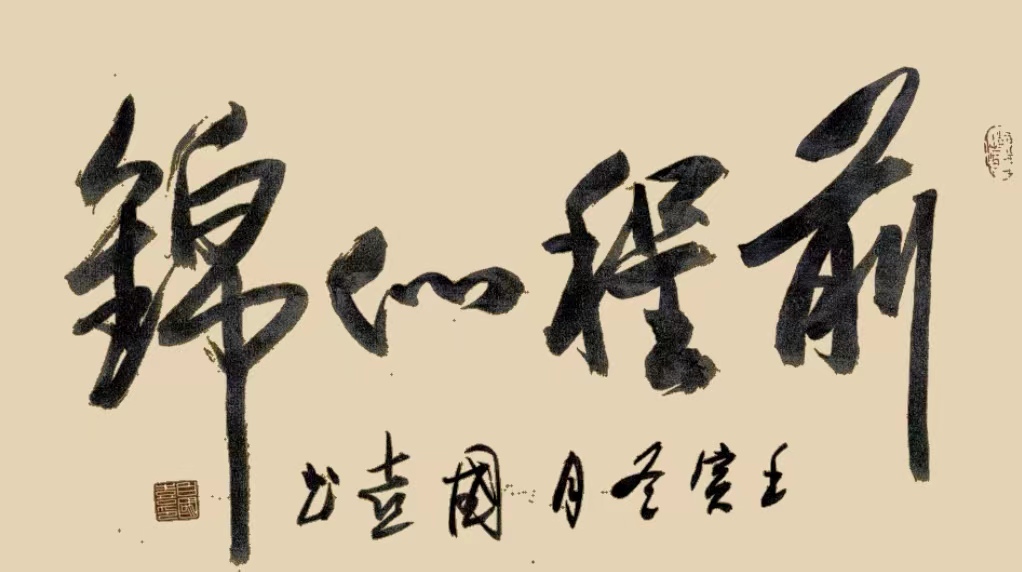 前程似錦
壬寅冬月國喜书